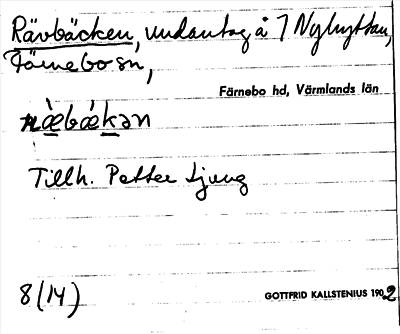 Rävbäcken, undantag å 7 Nyhyttan,
Färnebo sn,
Färnebo hd, Värmlands län
ræ̀bækən
Tillh. Petter Ljung
8 (14)
GOTTFRID KALLSTENIUS 1902